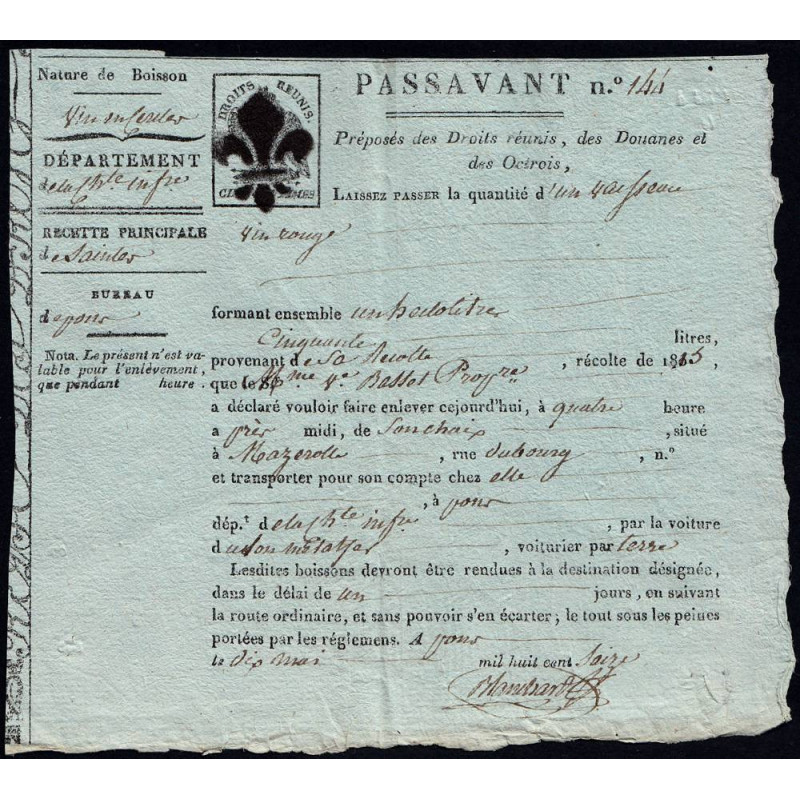 Nature de Boisson
Vin en Cercles
DÉPARTEMENT
de la Ch.te infre
RECETTE PRINCIPALE
de Saintes
BUREAU
de pons
Nota. Le présent n'est va-
lable pour l'enlèvement,
que pendant heure.
DROITS RÉUNIS.
PASSAVANT n.° 144
Préposés des Droits réunis, des Douanes et
des Octrois,
LAISSEZ PASSER la quantité d'un vaisseau
vin rouge
formant ensemble un hectolitre
Cinquante litres,
provenant de Sa Récolte, récolte de 1815,
que le Mme Ve Basset Propre
a déclaré vouloir faire enlever cejourd'hui, à quatre heure
a près midi, de Souchaix, situé
à Mazerolle, rue dubourg, n.°
et transporter pour son compte chez elle
, à pons
dép.t de la Ch.te infre, par la voiture
d'u son métayer, voiturier par terre
Lesdites boissons devront être rendues à la destination désignée,
dans le délai de un jours, en suivant
la route ordinaire, et sans pouvoir s'en écarter; le tout sous les peines
portées par les réglemens. A pons
le dix mai mil huit cent Saize